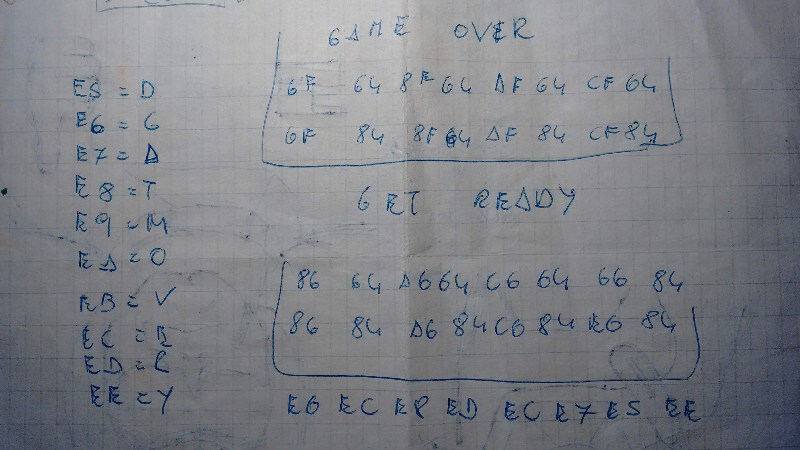 E5 = D
E6 = G
E7 = A
E8 = T
E9 = M
EA = O
EB = V
EC = E
ED = R
EE = Y
GAME OVER
6F 64 8F 64 AF 64 CF 64
6F 84 8F 64 AF 84 CF 84
GET READY
86 64 A6 64 C6 64 66 84
86 84 A6 84 C6 84 E6 84
E6 EC E8 ED EC E7 E5 EE